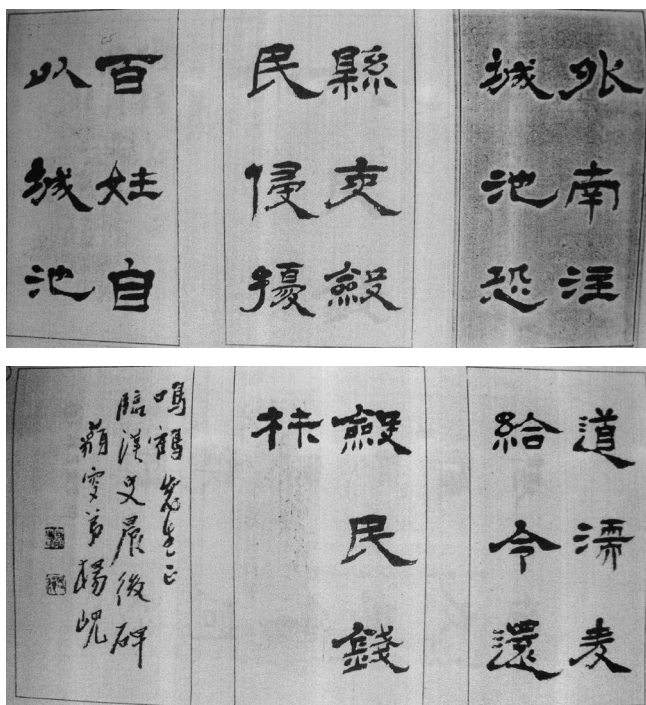 外南注
城池恐
縣吏斂
民侵擾
百姓自
以城池
道濡麦
給令還
斂民錢
材
鳴鶴先生正
臨漢史晨後碑
藐叟弟楊峴